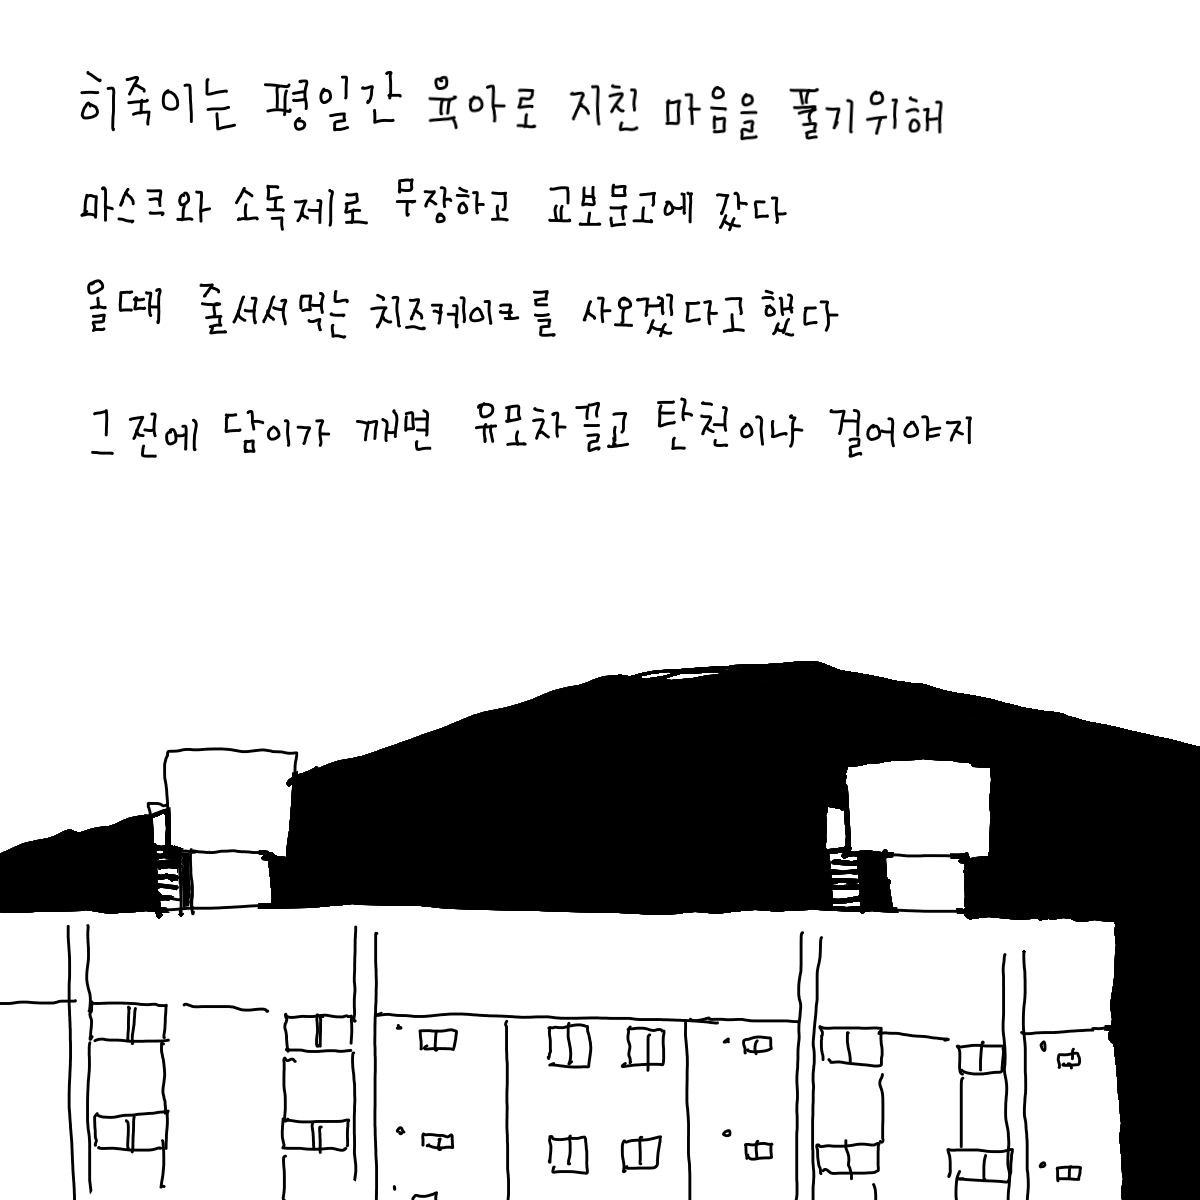 히죽이는 평일간 육아로 지친 마음을 풀기위해
마스크와 소독제로 무장하고 교보문고에 갔다
올때 줄서서먹는 치즈케이크를 사오겠다고했다
그전에 담이가 깨면 유모차끌고 탄천이나 걸어야지